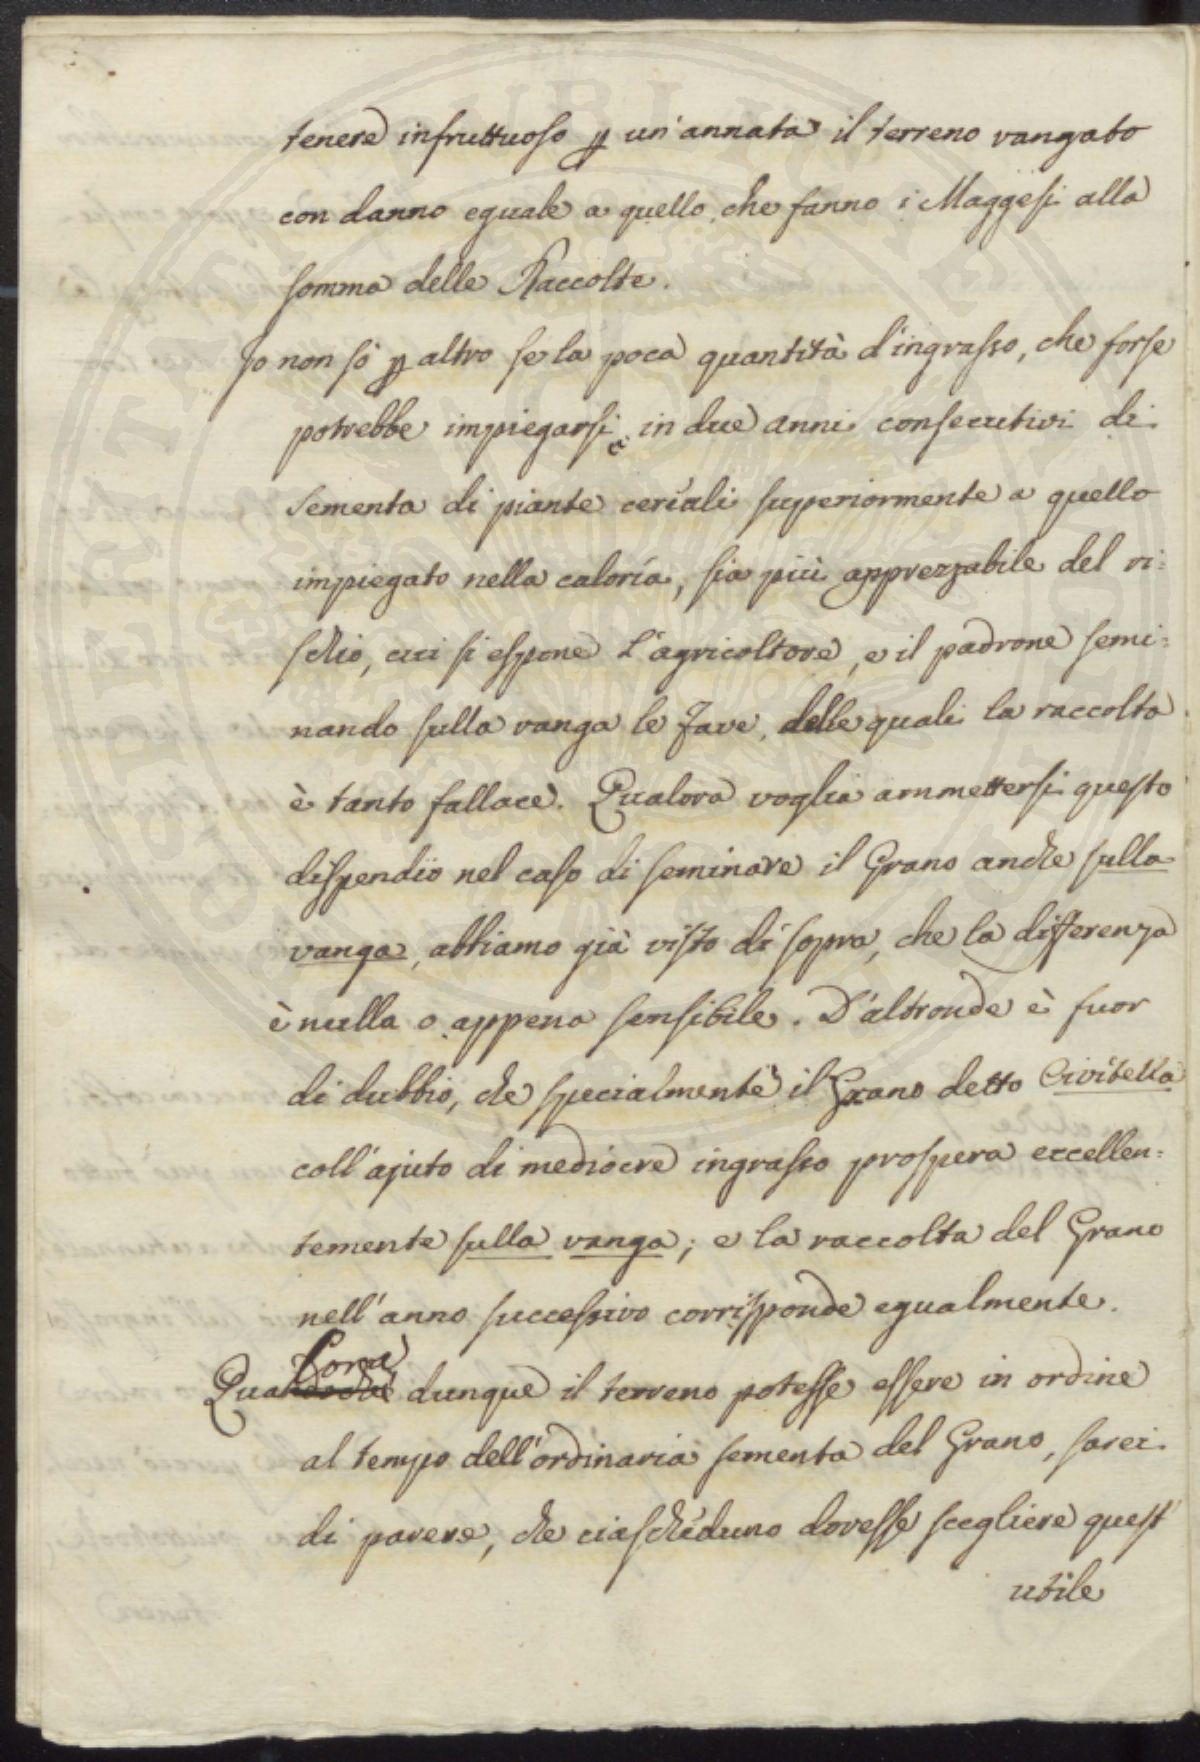 tenere infruttuoso p un'annata il terreno vangato
con danno eguale a quello che fanno i Maggesi alla
somma delle Raccolte.
Io non sò p altro se la poca quantità d'ingrasso, che forse
potrebbe impiegarsi in due anni consecutivi di
sementa di piante ceriali superiormente a quello
impiegato nella caloría, sia più apprezzabile del ri=
schio, cui si espone l'agricoltore, e il padrone semi=
nando sulla vanga le Fave, delle quali la raccolta
è tanto fallace. Qualora voglia ammettersi questo
dispendio nel caso di seminare il Grano anche sulla
vanga, abbiamo già visto di sopra, che la differenza
è nulla o appena sensibile. D'altronde è fuor
di dubbio, che specialmente il Grano detto Civitella
coll'ajuto di mediocre ingrasso prospera eccellen=
temente sulla vanga; e la raccolta del Grano
nell'anno successivo corrisponde egualmente.
lora
Qua dunque il terreno potesse essere in ordine
al tempo dell'ordinaria sementa del Grano, sarei
di parere, che ciascheduno dovesse scegliere quest'
utile